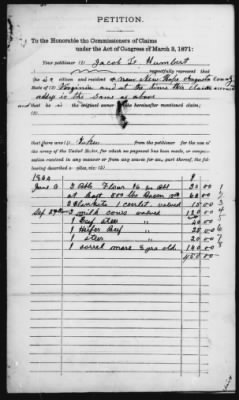 PETITION.
To the Honorable the Commissioners of Claims
under the Act of Congress of March 3, 1871:
Your petitioner (1) Jacob L. Humbert
respectfully represent that
he is a citizen and resident of near New Hope Augusta county
State Virginia and at the time this claim
is the same as above
and that he is the original owner of the hereinafter mentioned claim;
that there was (1) taken from the petitioner for the use of the
army of the United States, for which no payment has been made, or compensation
received in any manner or from any source for any part thereof, the following
described
1864 $
June 6 3 Bbls Flour 00 1
at 500 lbs Bacon 00 2
2 Blankets 1 valued 15 00 3
Sep 2 milch cows valued 00 4
1 Beef steer " 40 00 5
1 Heifer Beef " 25 00 6
1 steer " 20 00 7
1 sorrel mare years old 140 00 8
450 00